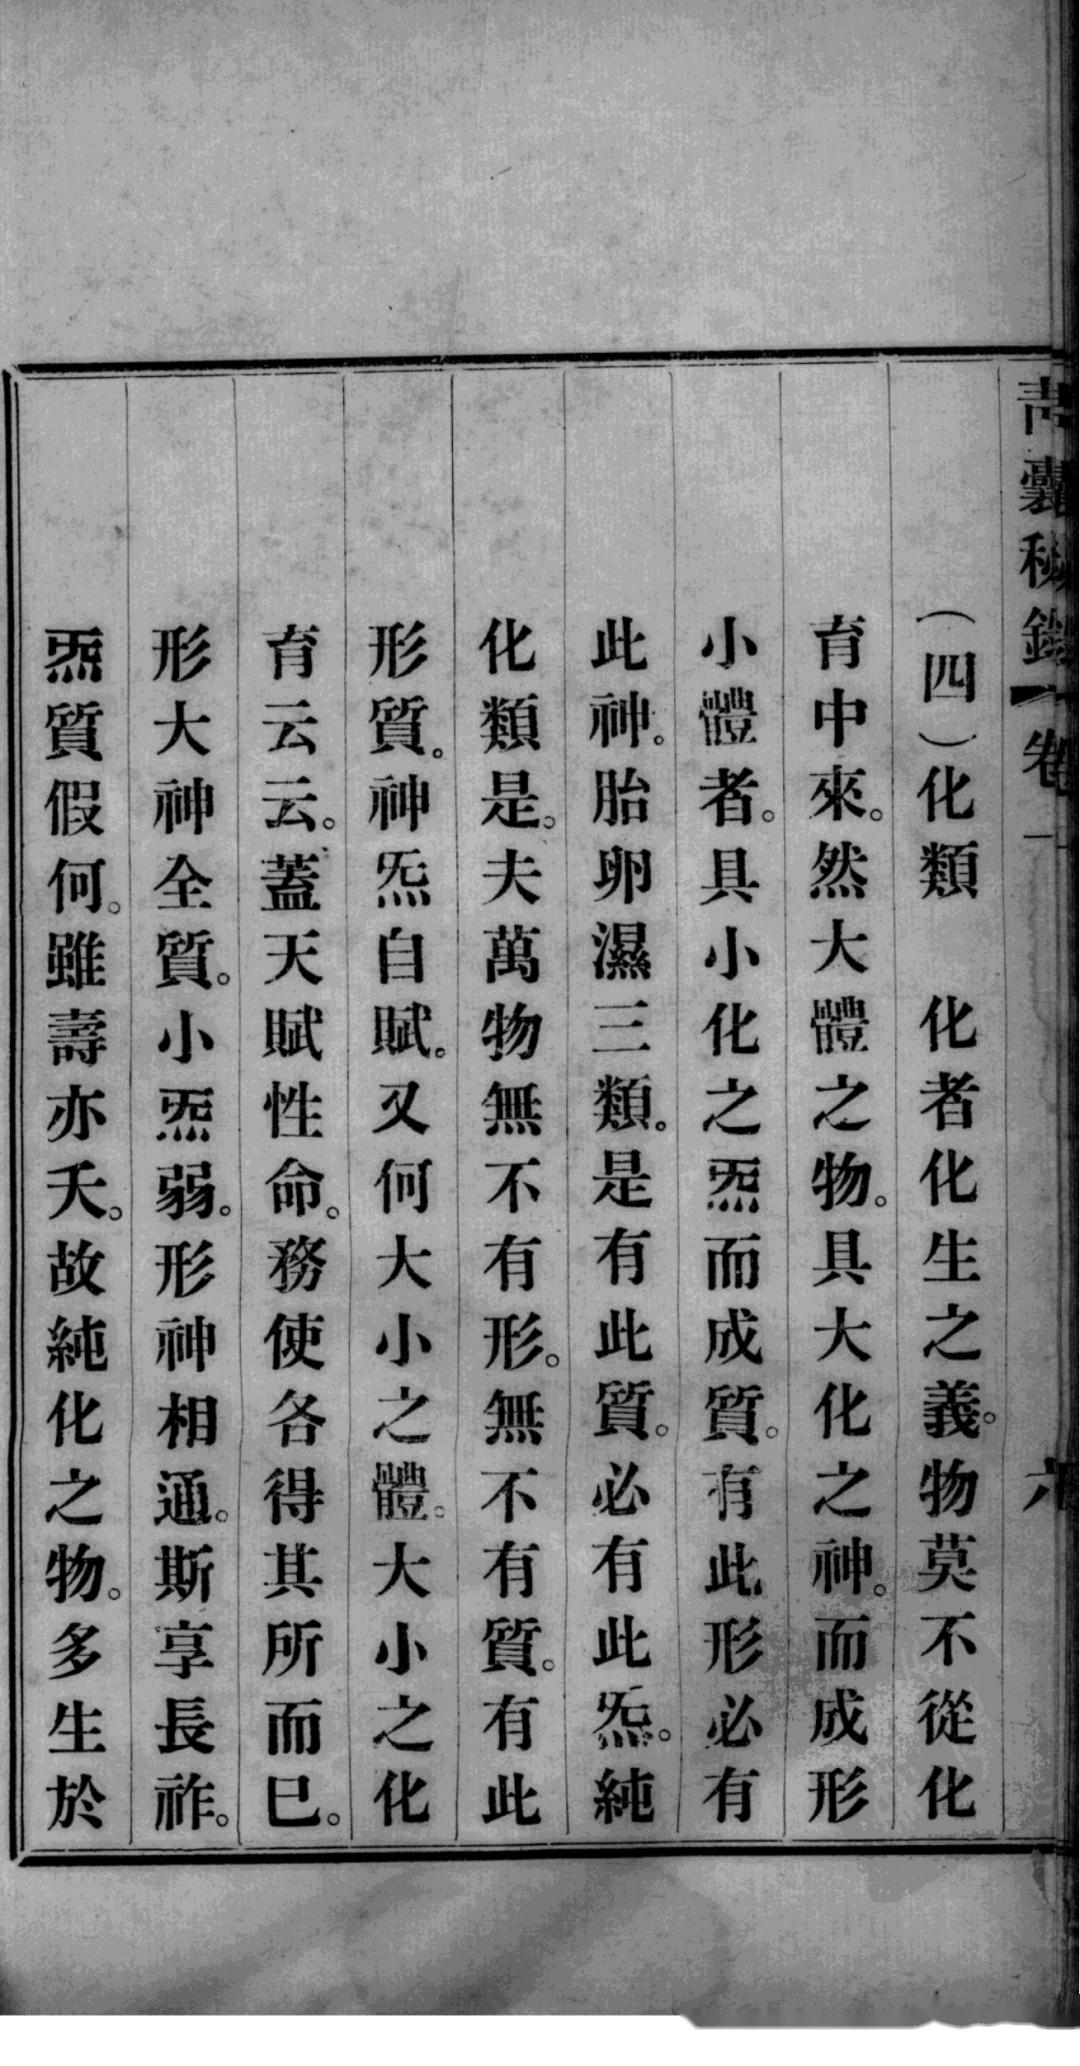 青囊秘錄 卷一 六
（四）化類　化者化生之義。物莫不從化
育中來。然大體之物。具大化之神。而成形
小體者。具小化之炁而成質。有此形必有
此神。胎卵濕三類。是有此質。必有此炁。純
化類是。夫萬物無不有形。無不有質。有此
形質。神炁自賦。又何大小之體。大小之化
育云云。蓋天賦性命。務使各得其所而巳。
形大神全質。小炁弱。形神相通。斯享長祚。
炁質假何。雖壽亦夭。故純化之物。多生於